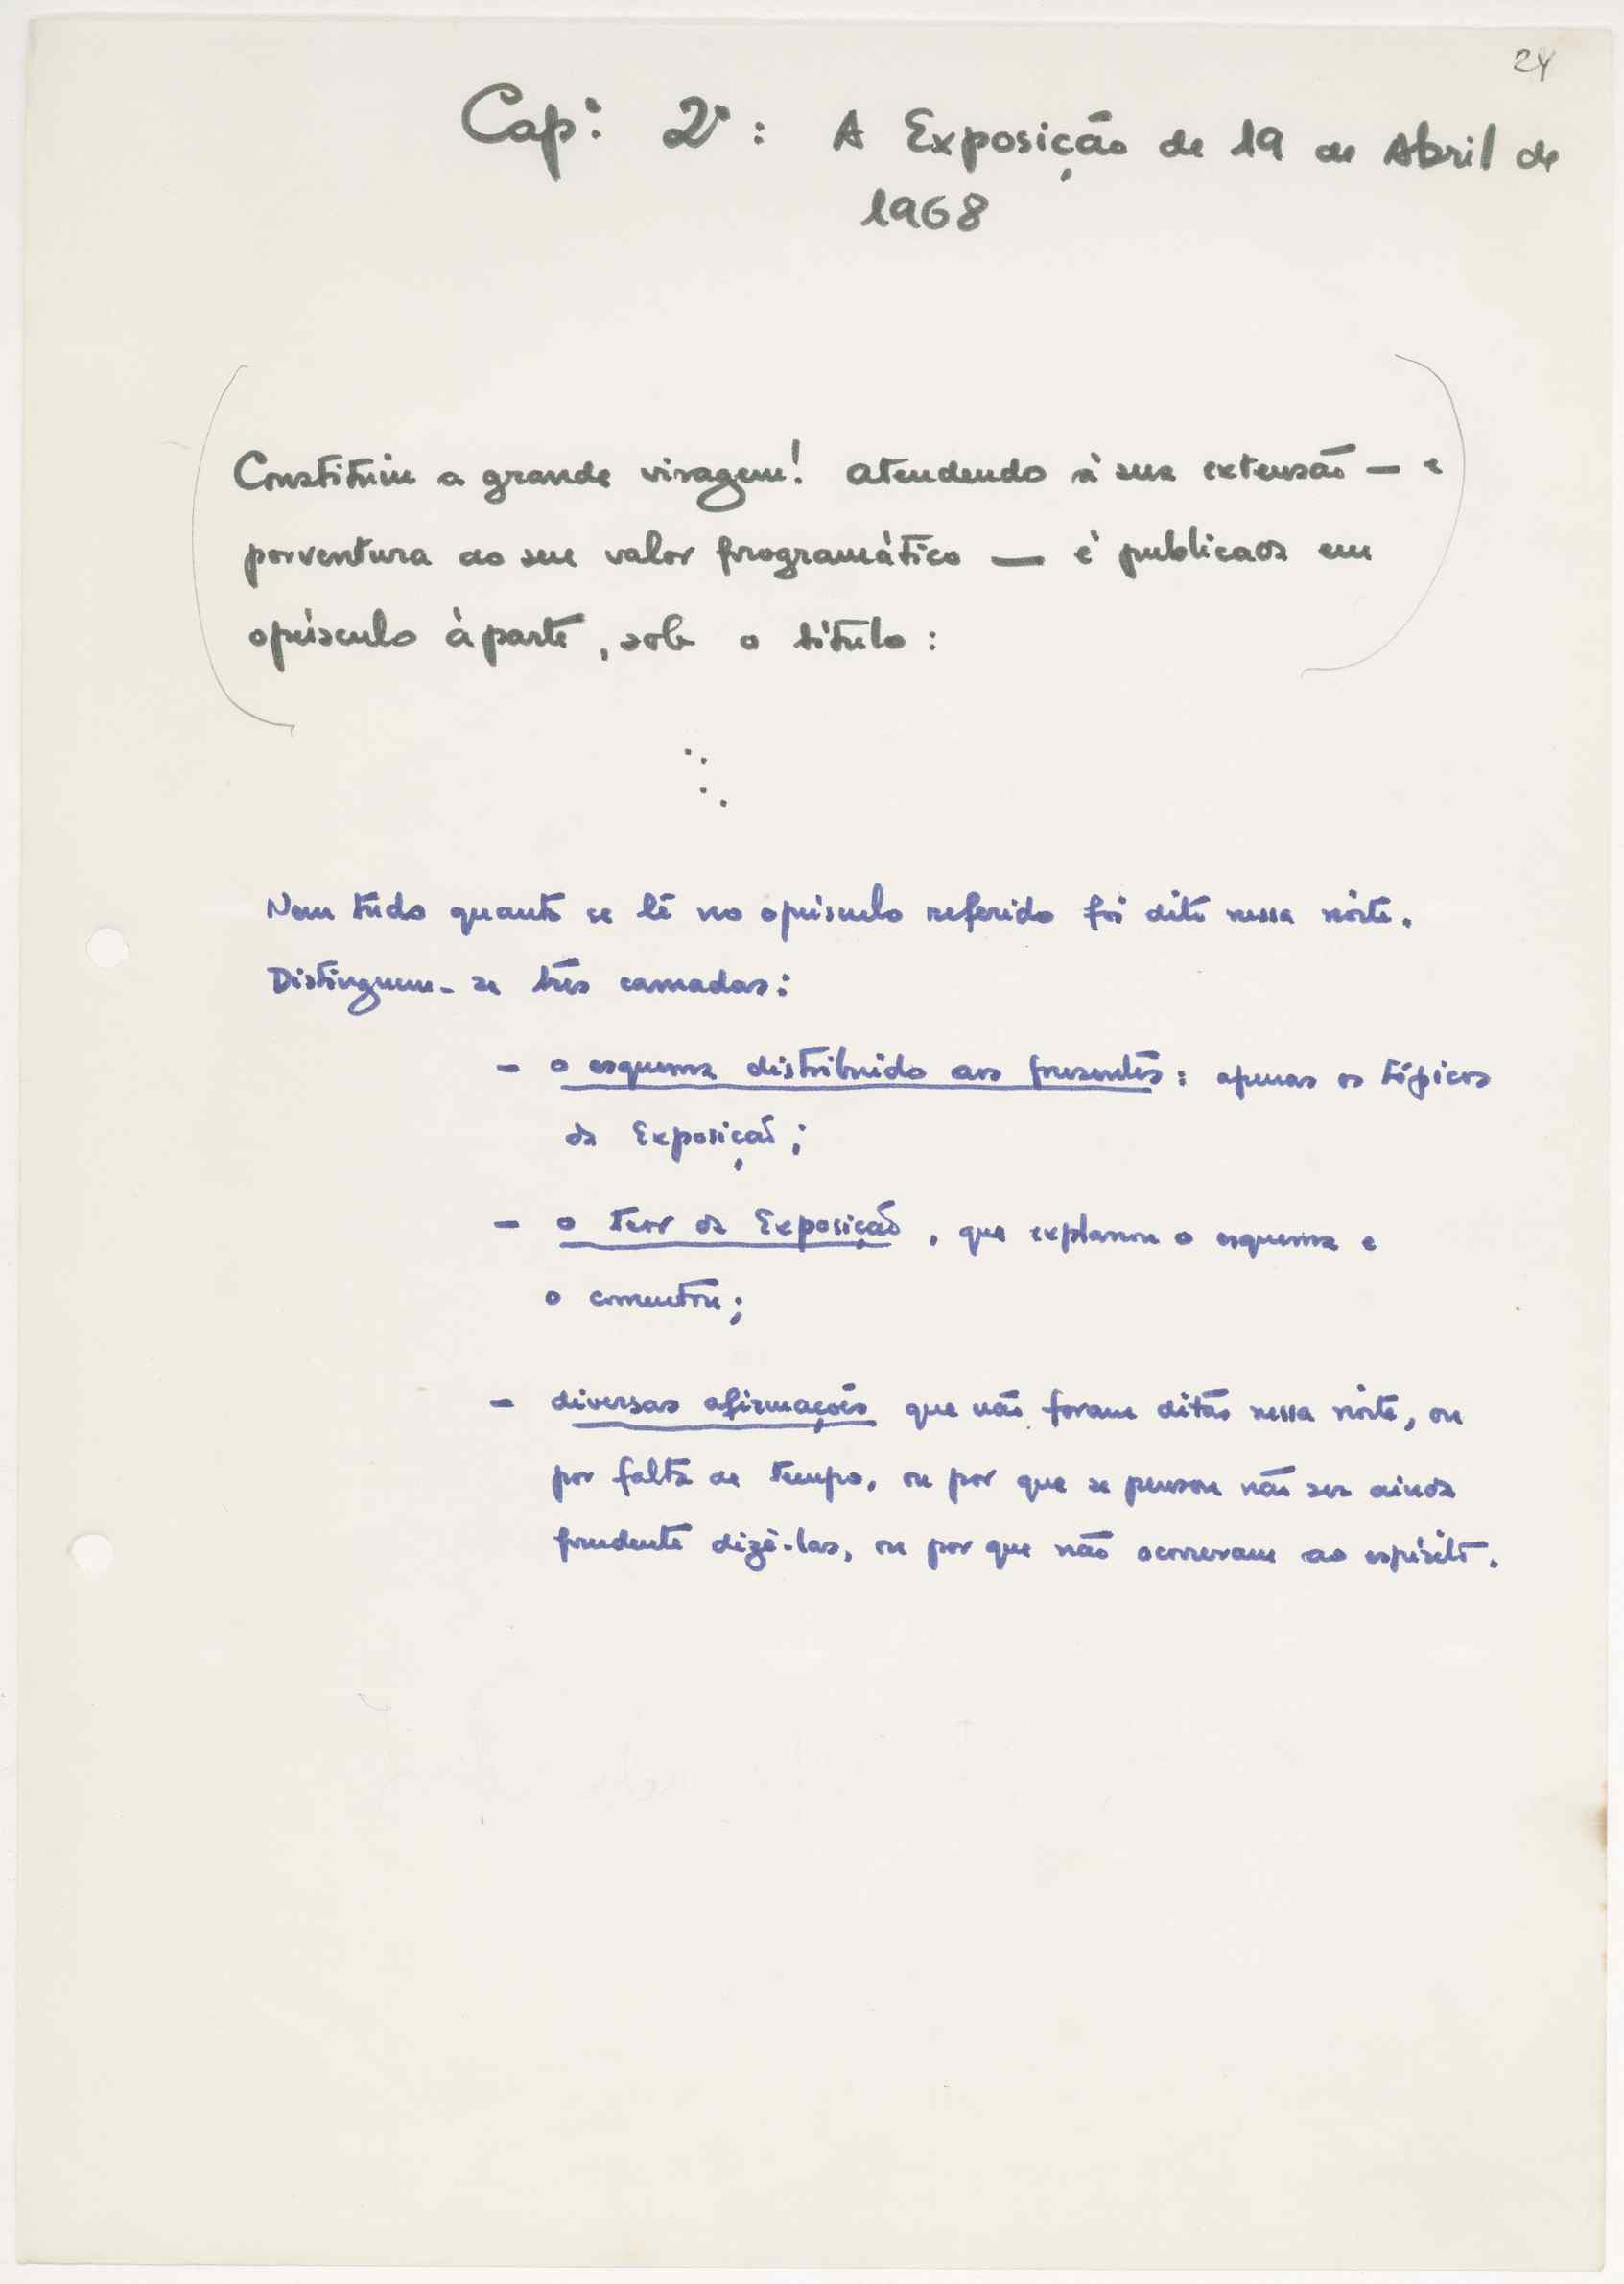 24
Cap.º 2º: A Exposição de 19 de Abril de
1968
Constituiu a grande viragem! Atendendo à sua extensão — e
porventura ao seu valor programático — é publicada em
opúsculo àparte, sob o título:
Nem tudo quanto se lê no opúsculo referido foi dito nessa noite.
Distinguem-se três camadas:
- o esquema distribuido aos presentes: apenas os tópicos
da Exposição;
- o teor da Exposição, que explanou o esquema e
o comentou;
- diversas afirmações que não foram ditas nessa noite, ou
por falta de tempo, ou por que se pensou não ser ainda
prudente dizê-las, ou por que não ocorreram ao espírito.